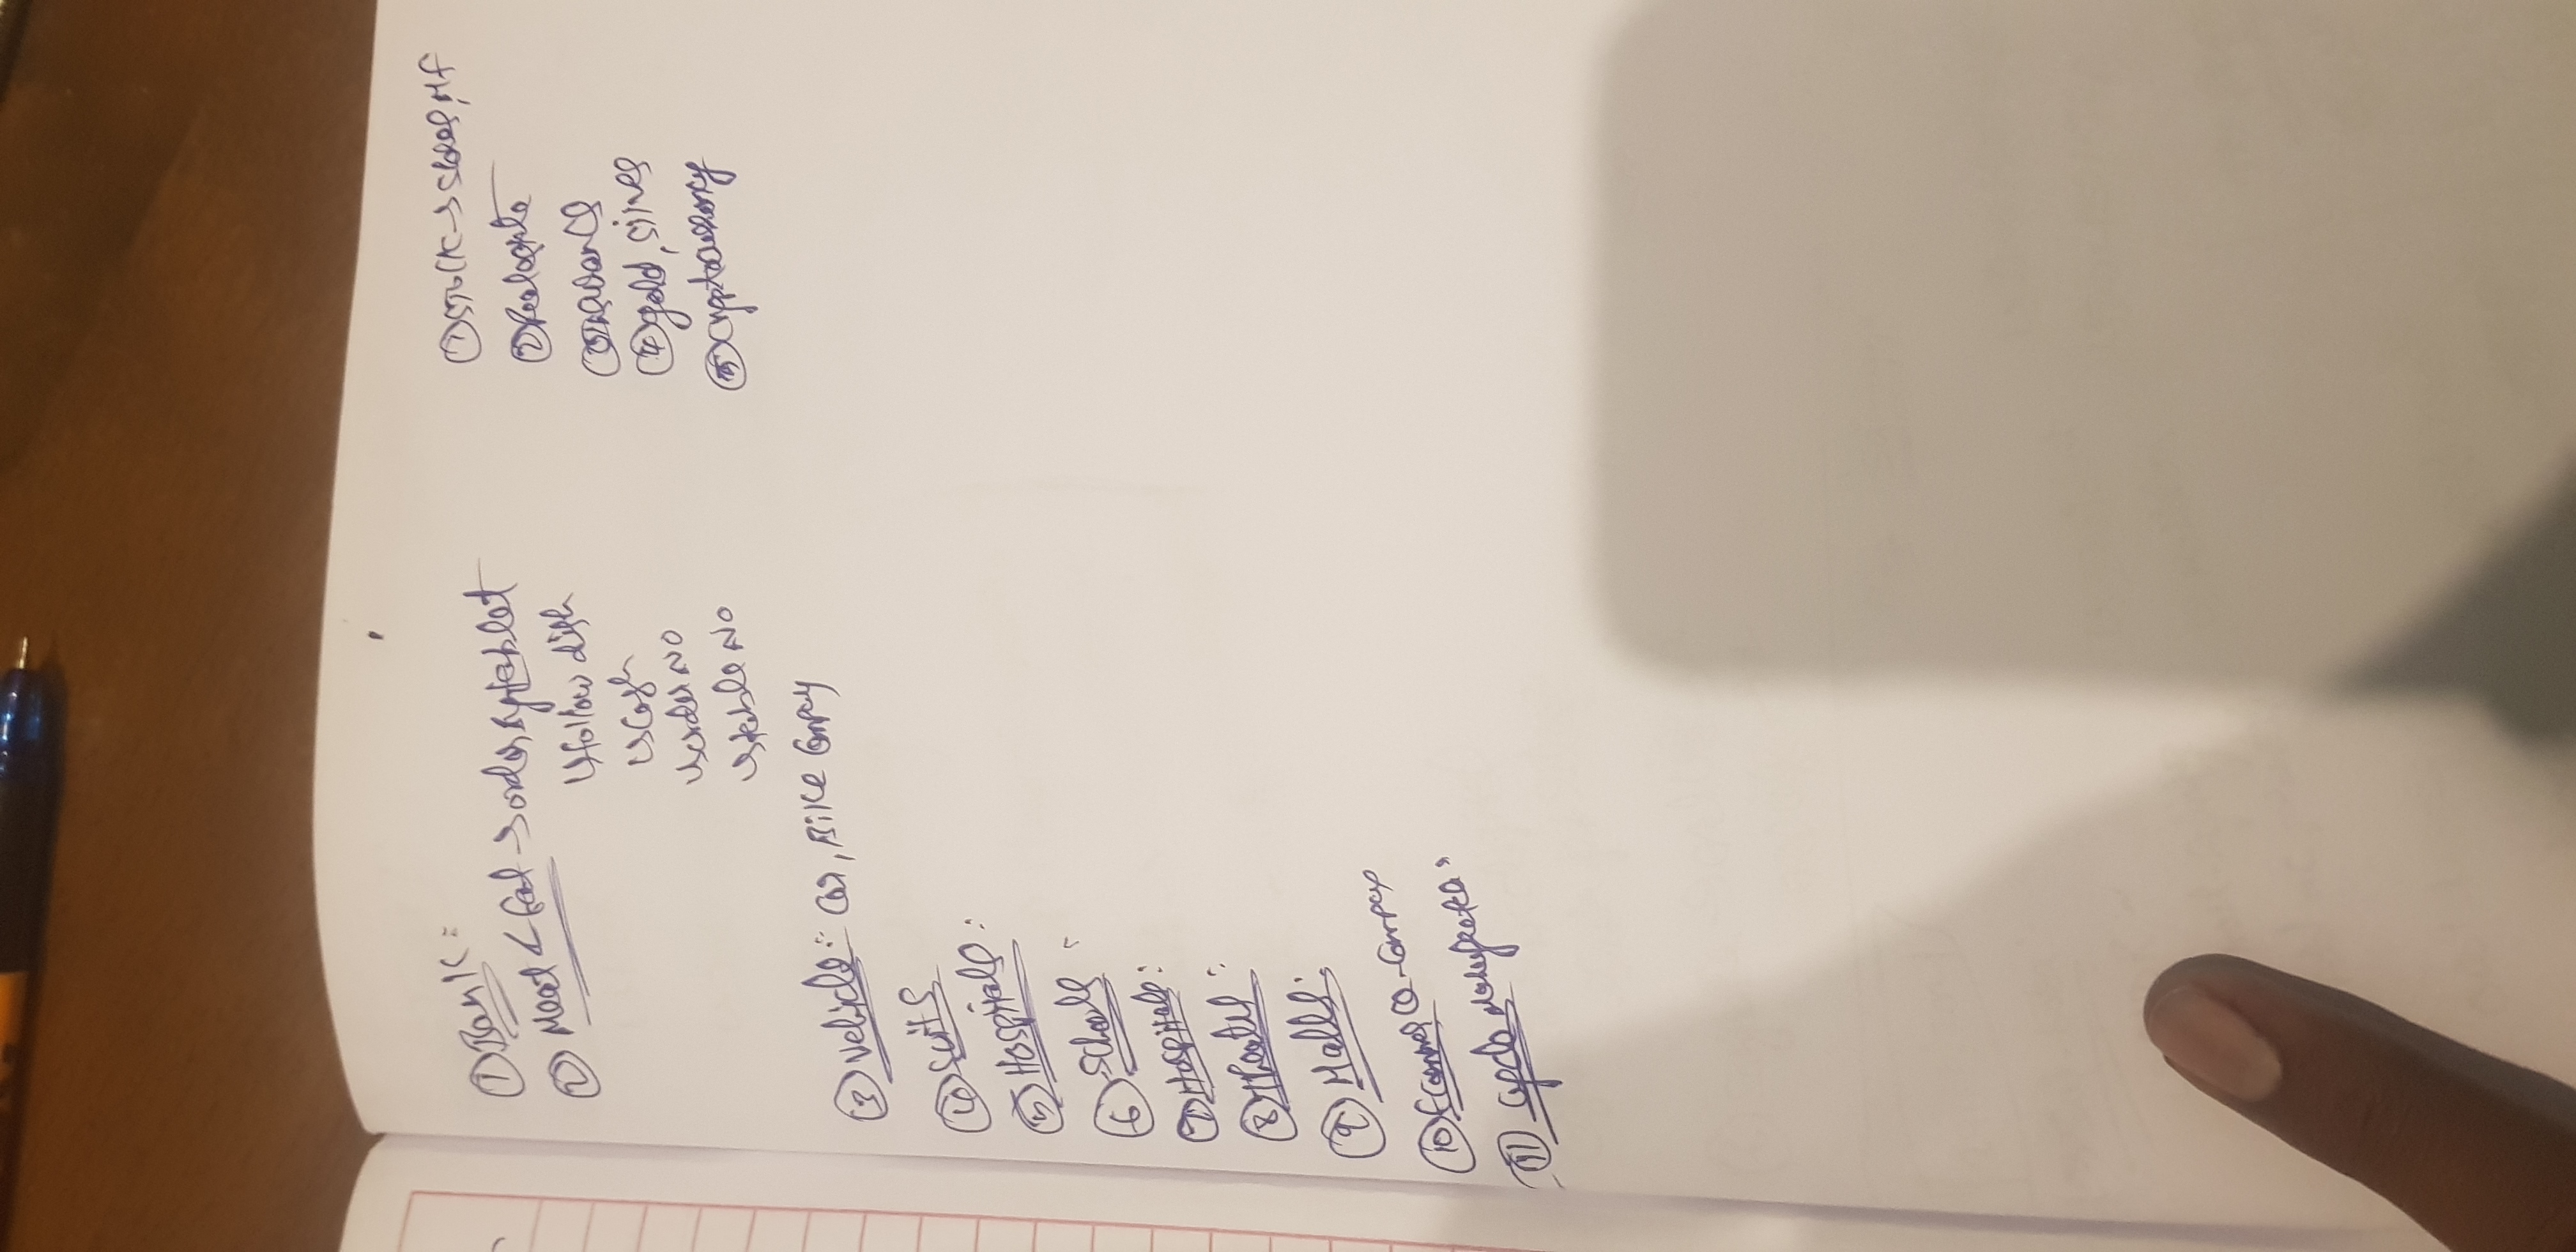 ① Bank:
② Meat < → order by tablet
↳ follow dish
↳ Cash
↳ order No
↳ table No
③ Vehicle:- Car, Bike Company
④ Suits
⑤ Hospitals:
⑥ Schools:
⑦ Hospitals:
⑧ Theater:
⑨ Malls:
⑩ - Company
⑪ Cycle
① Stock → MF
② Realestate
③ Insurance
④ gold, silver
⑤ Cryptocurrency